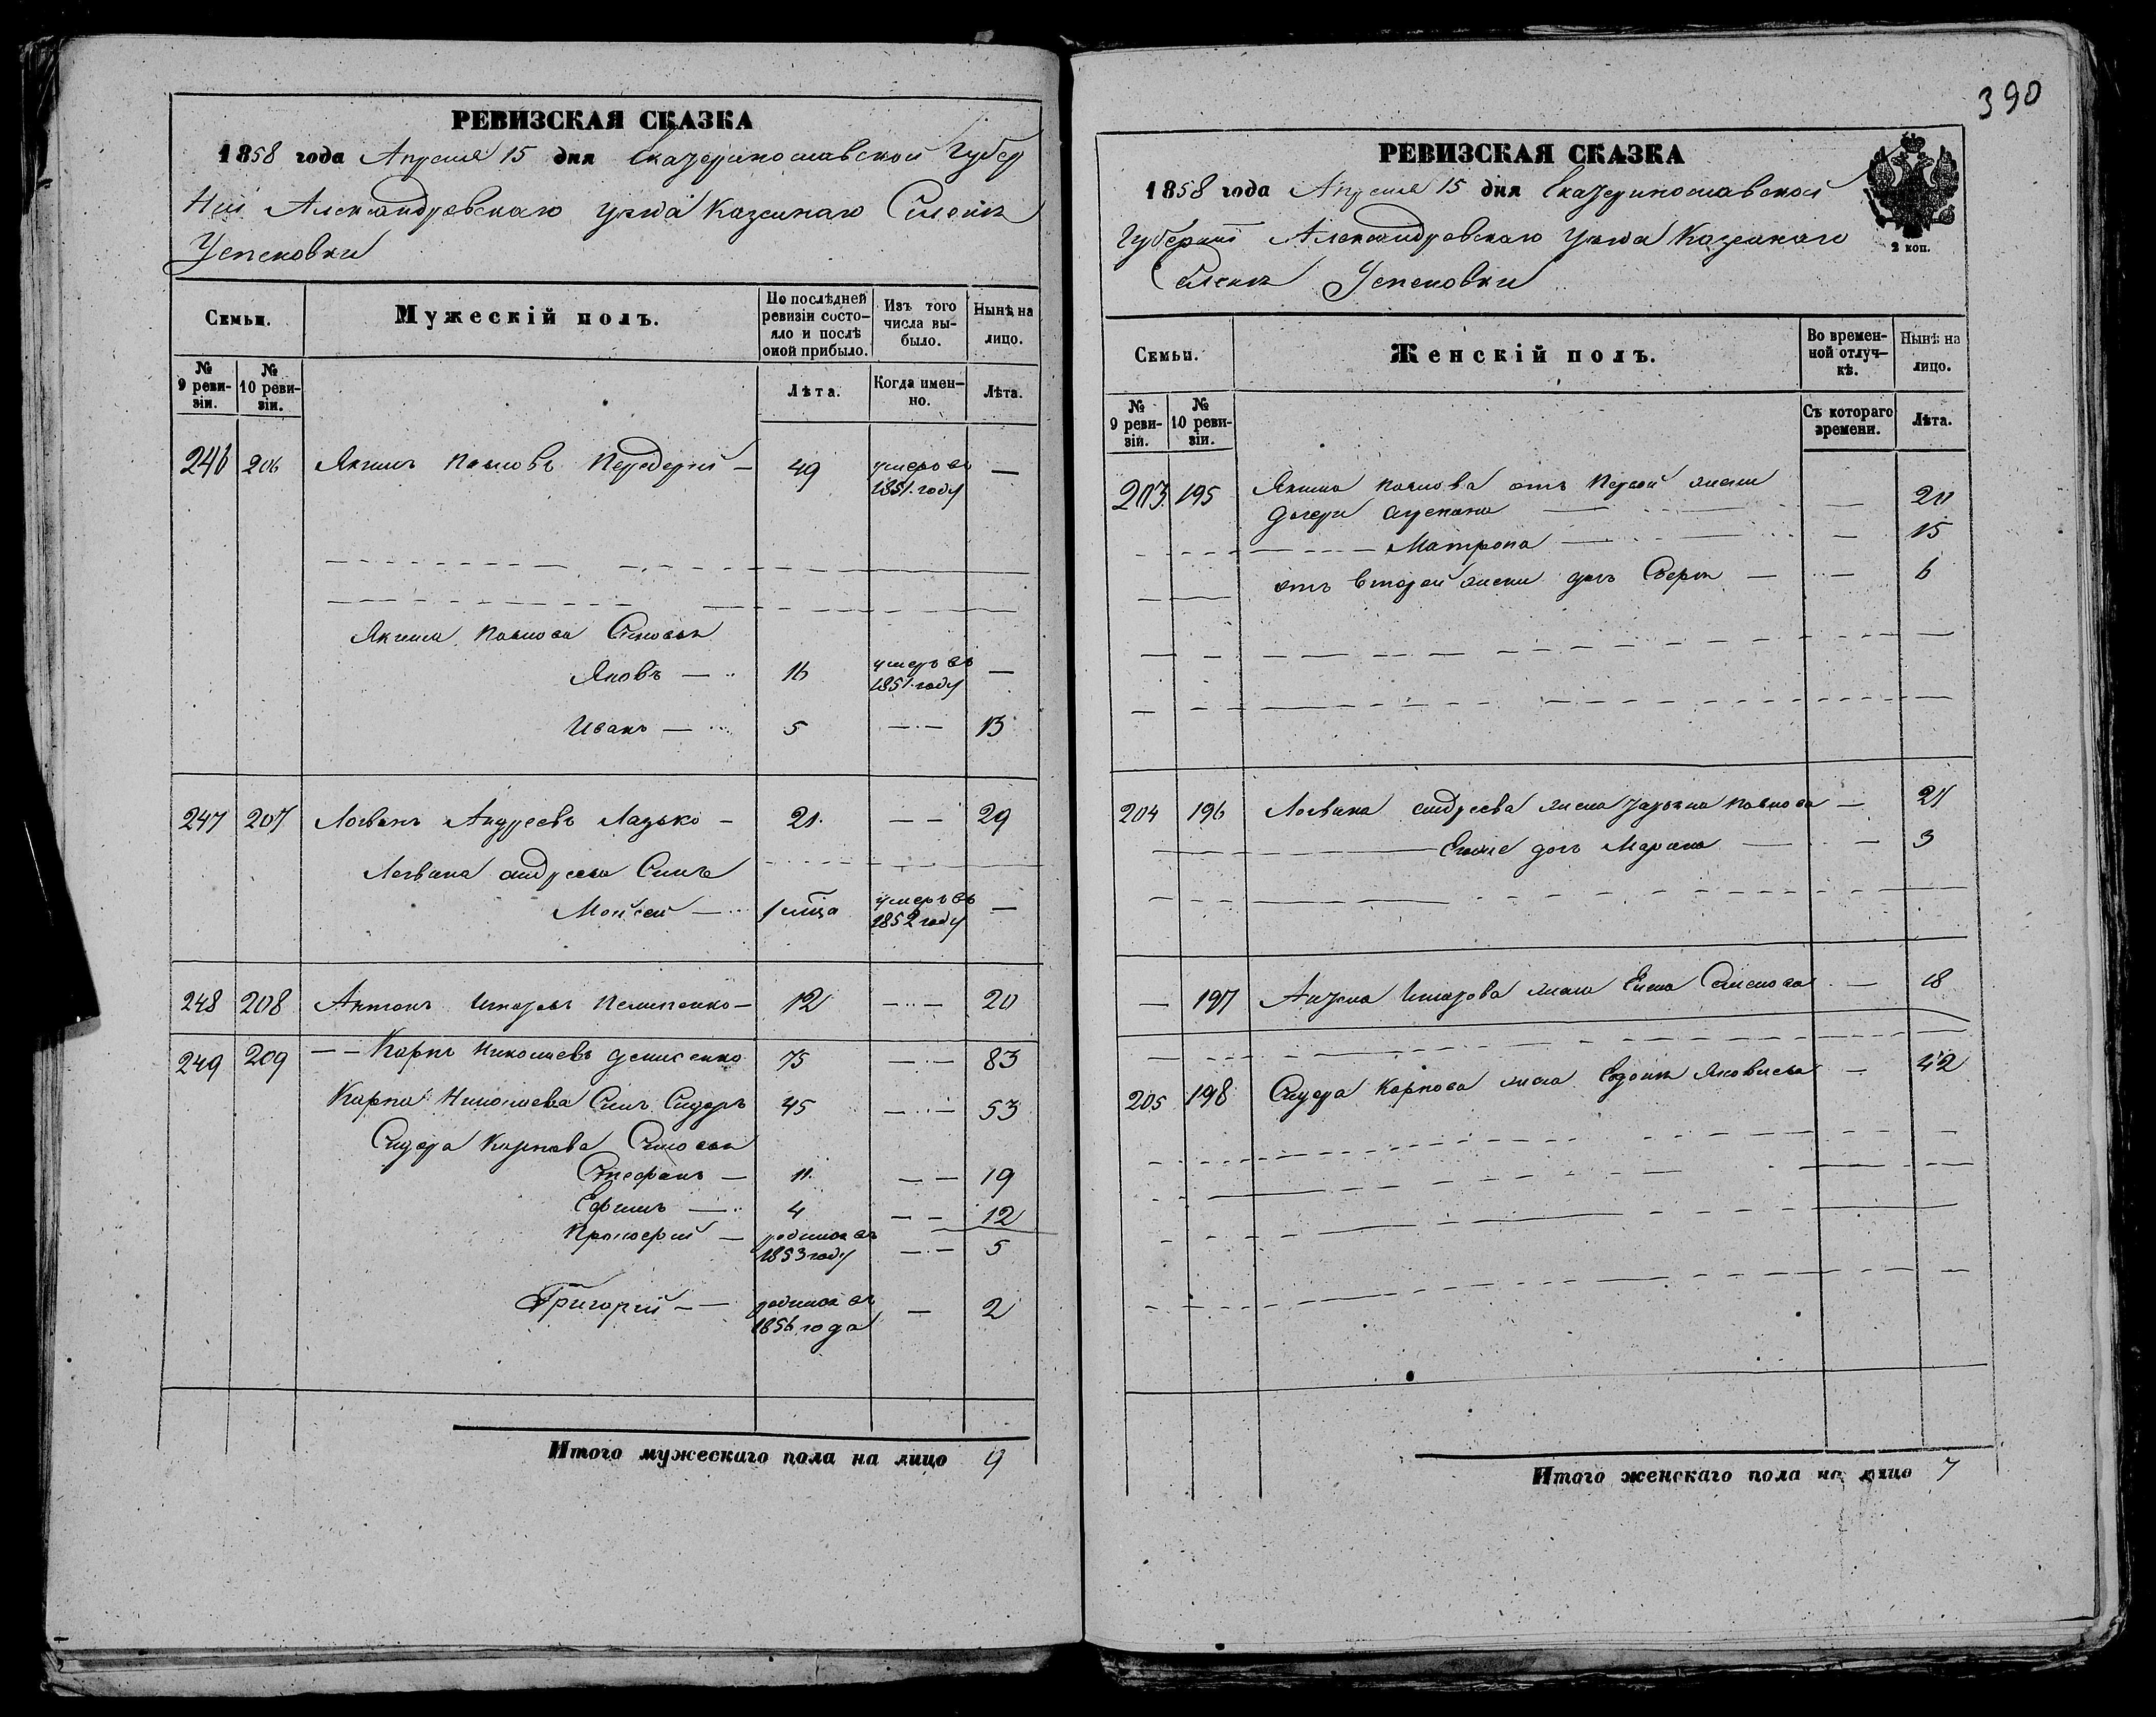 РЕВИЗСКАЯ СКАЗКА
1858 года Апреля 15 дня Екатеринославской Губер
нии Александровскаго уезда Казеннаго Селенія
Успеновки
Семьи.
Мужескій полъ.
По послѣдней ревизіи состо-яло и послѣ оной прибыло.
Изъ того числа вы-было.
Нынѣ на лицо.
№ 9 реви-зіи.
№ 10 реви-зіи.
Лѣта.
Когда имен-но.
Лѣта.
246 206 Якимъ Павловъ Передерій — 49 умеръ въ 1851 году —
Якима Павлова Сыновья
Яковъ — 16 умеръ въ 1851 году —
Иванъ — 5 — 13
247 207 Логвинъ Андреевъ Лазько — 21 — 29
Логвина андреева Сынъ
Мойсей — 1 умеръ въ 1852 году —
248 208 Антонъ 12 — 20
249 209 Карпъ Николаевъ денисенко 75 — 83
Карпа Николаева Сынъ Сидоръ 45 — 53
Сидора Карпова Сыновья
Стефанъ — 11 — 19
Ефимъ — 4 — 12
Прокофій — родился въ 1853 году — 5
Григорій — родился въ 1856 года — 2
Итого мужескаго пола на лицо 9
390
РЕВИЗСКАЯ СКАЗКА
1858 года Апреля 15 дня Екатеринославской
Губерніи Александровскаго уезда Казеннаго
Селенія Успеновки
2 коп.
Семьи.
Женскій полъ.
Во времен-ной отлуч-кѣ.
Нынѣ на лицо.
№ 9 реви-зіи.
№ 10 реви-зіи.
Съ котораго времени.
Лѣта.
203 195 Якима Павлова отъ Первой жены
дочери — 20
Матрона — 15
отъ второй жены дочь — 6
204 196 Логвина андреева жена Павлова —
Егоже дочь Марина — 3
— 197 Антона жена Елена Семенова — 18
205 198 Сидора Карпова жена Евдокія Яковлева — 42
Итого женскаго пола на лицо 7